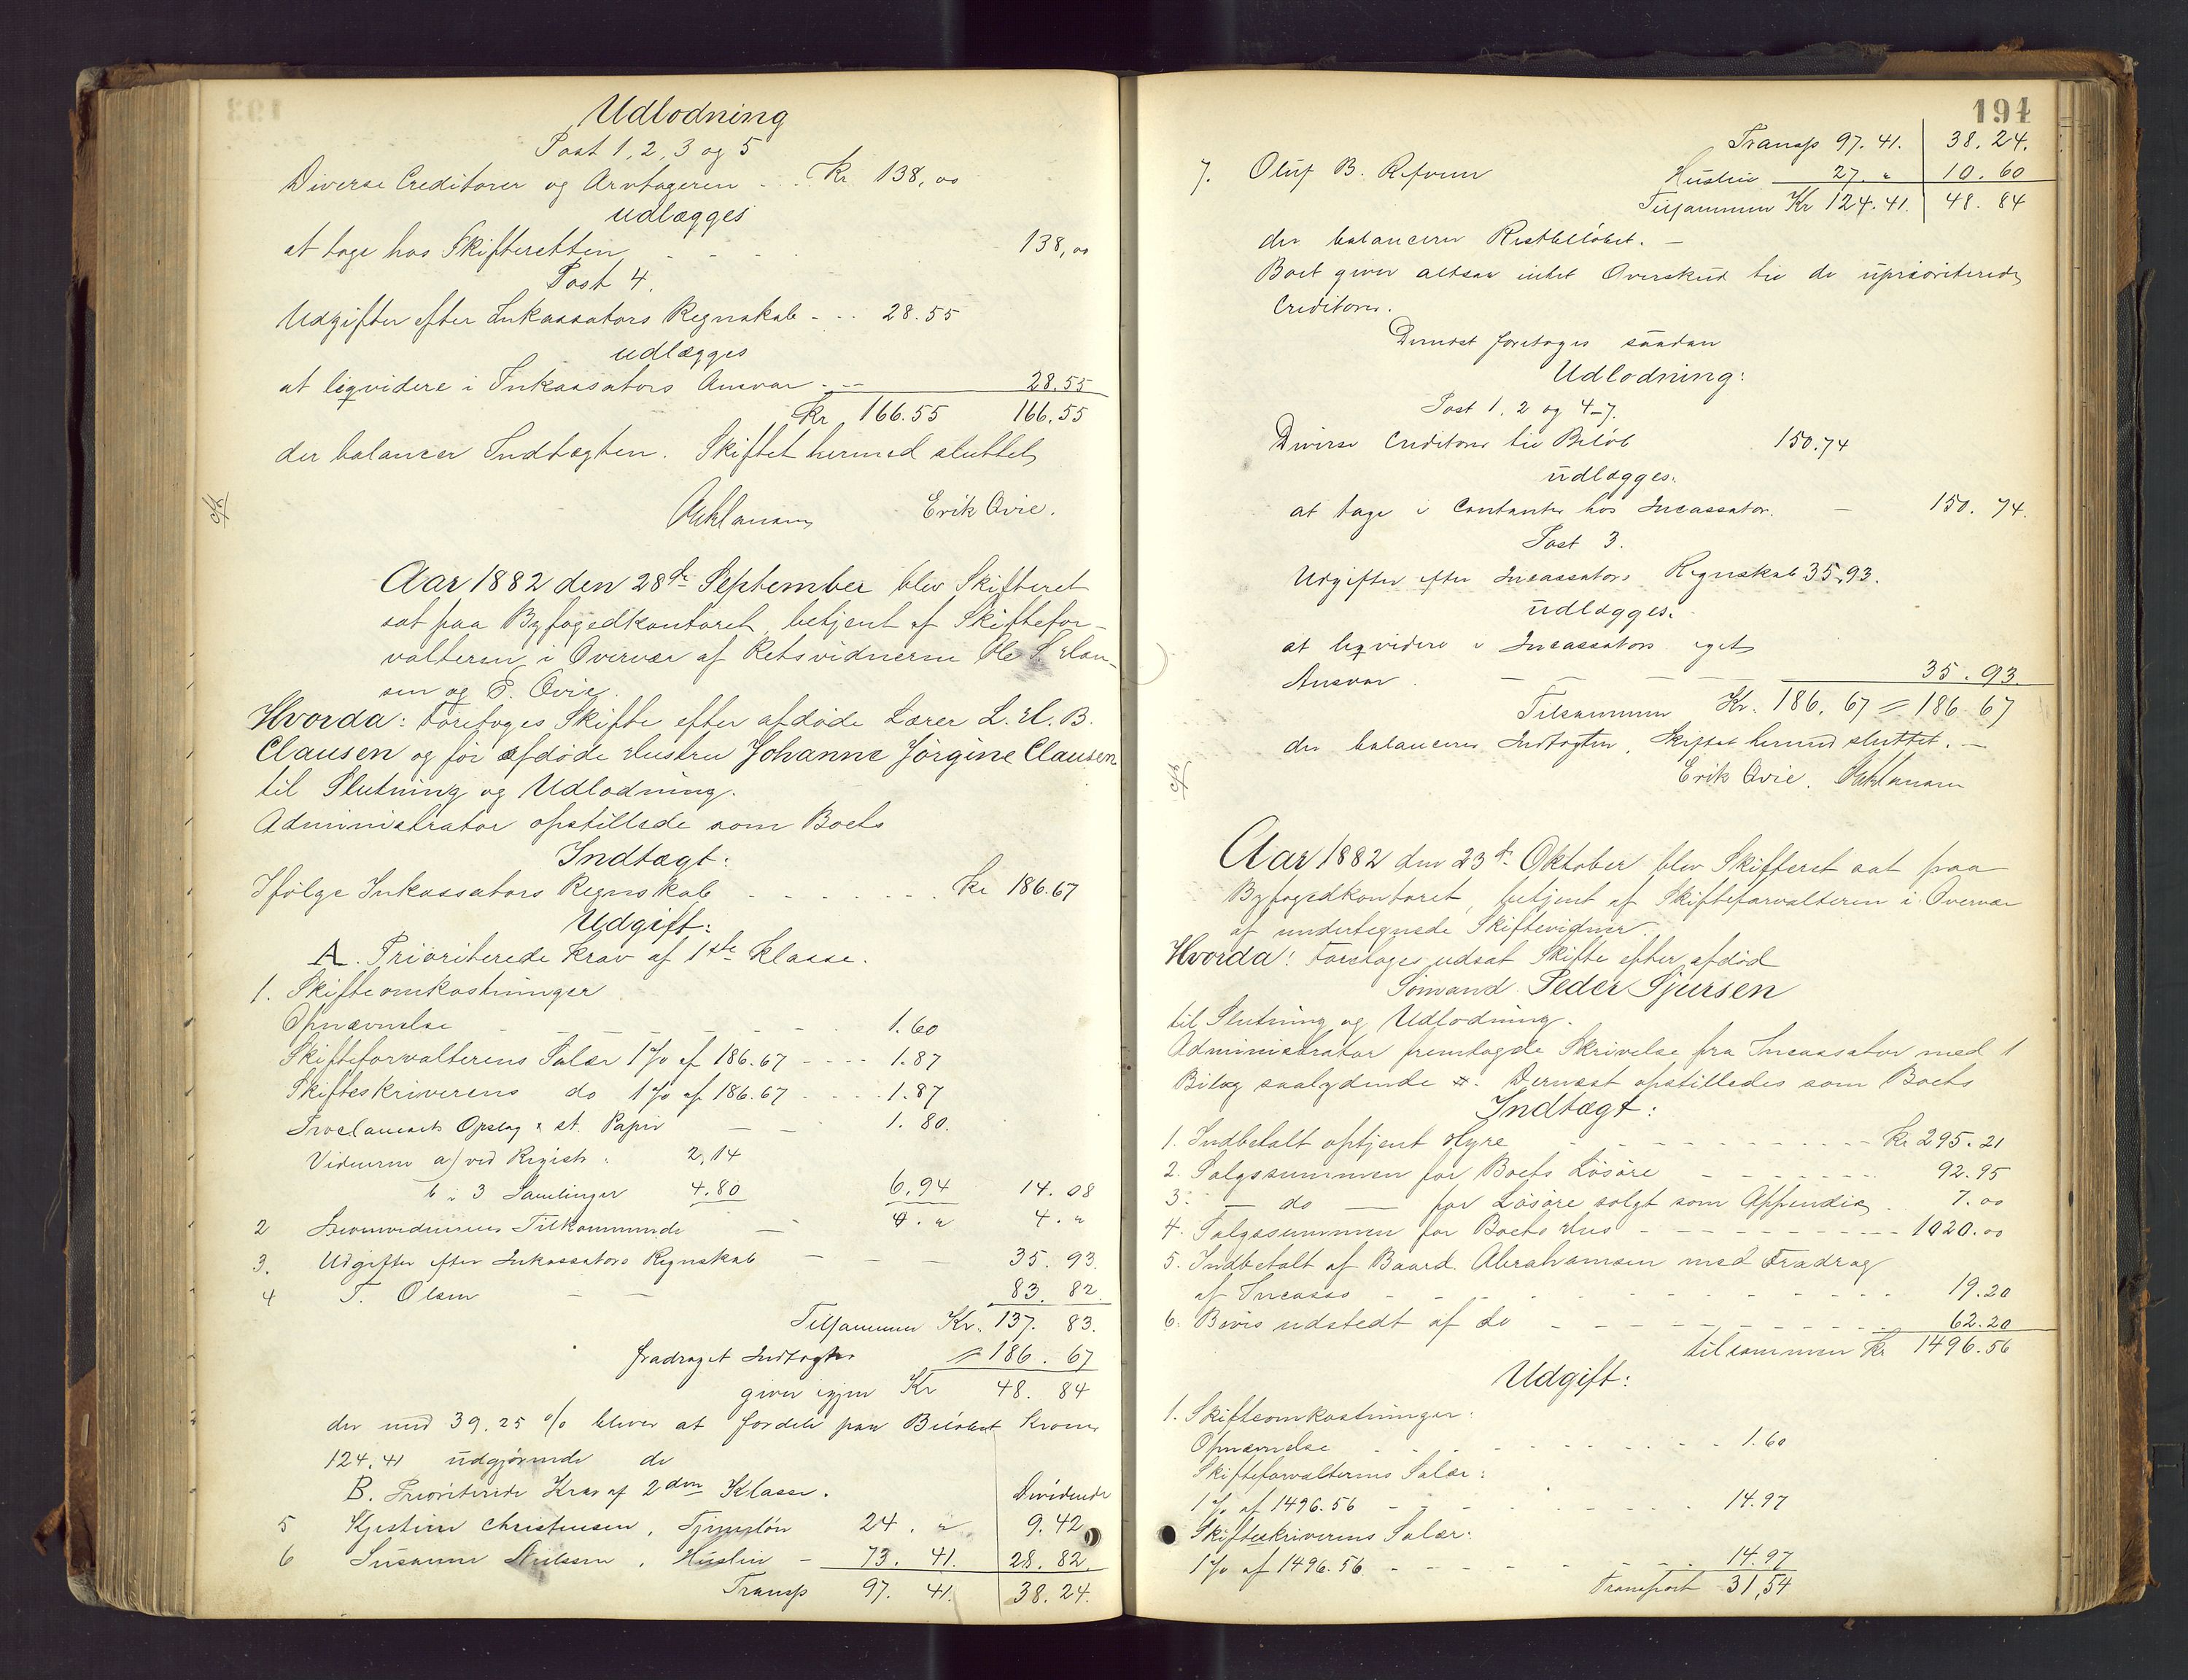 Udlodning
Post 1, 2, 3 og 5
Diverse Creditorer og Arvtageren - . . Kr 138,00
udlægges
at tage hos Skifteretten - - - . 138,00
Post 4.
Udgifter efter Inkassators Regnskab - . . 28.55
udlægges
at liqvidere i Inkassators Ansvar - -- 28.55
Kr 166.55 166.55
der balancer Indtægten. Skiftet hermed sluttet,
Erik Qvie.
Aar 1882 den 28de September blev Skifteret
sat paa Byfogedkontoret, betjent af Skiftefor-
valteren i Overvær af Retsvidnerne Ole S. Han-
sen og E. Qvie.
Hvorda: Foretoges Skifte efter afdøde Lærer L. H. B.
Clausen og før afdøde Hustru Johanne Jørgine Clausen
til Slutning og Udlodning.
Administrator opstillede som Boets
Indtægt:
Ifølge Inkassators Regnskab - - - - - . . Kr 186.67
Udgift:
A. Prioriterede Krav af 1ste Klasse.
1. Skifteomkostninger
Opnævnelse - - - - - - - 1.60
Skifteforvalterens Salær 1% af 186.67 - - - - 1.87
Skifteskriverens do 1% af 186.67 - . . . . 1.87
Proclamaets Opslag & st. Papir — — 1.80.
Vidnerne a) ved Registr: 2,14
b i 3 Samlinger 4.80 6.94 14.08
2 Tilkommende — 4. " 4. "
3. Udgifter efter Inkassators Regnskab — — — 35.93.
4 T. Olsen — — 83.82
Tilsammen Kr. 137.83.
fradraget Indtægten 186.67
giver igjen Kr 48.84
der med 39.25 % bliver at fordele paa Beløbet Kroner
124.41 udgjørende de
B. Prioriterede Krav af 2den Klasse. Dividende
5 Kjestine Christensen, Tjenerløn 24. " 9.42
6 Susanne Nielsen, Husleie - 73.41. 28.82.
Transp 97.41. 38.24.
194
Transp 97.41. 38.24.
7. Oluf B. Refvem Husleie 27. " 10.60
Tilsammen Kr 124.41. 48.84
der balancerer Restbeløbet. —
Boet giver altsaa intet Overskud til de uprioriterede
Creditorer.
Dernæst foretoges saadan
Udlodning:
Post 1, 2 og 4-7.
Diverse Creditorer til Beløb 150.74
udlægges:
at tage i Contanter hos Incassator. — 150.74.
Post 3.
Udgifter efter Incassators Regnskab 35.93.
udlægges:
at liqvidere i Incassators eget
Ansvar. — — — — 35.93.
Tilsammen Kr. 186.67 = 186.67
der balancerer Indtægten. Skiftet hermed sluttet. —
Erik Qvie.
Aar 1882 den 23de Oktober blev Skifteret sat paa
Byfogedkontoret, betjent af Skifteforvalteren i Overvær
af undertegnede Skiftevidner.
Hvorda: Foretoges udsat Skifte efter afdød
Sømand Peder Sjursen
til Slutning og Udlodning.
Administrator fremlagde Skrivelse fra Incassator med 1
Bilag saalydende #. Dernæst opstilledes som Boets
Indtægt:
1. Indbetalt optjent Hyre - - - - - - - - - - Kr 295.21
2. Salgssummen for Boets Løsøre - - - - - - 92.95
3. — do — for Løsøre solgt som Appendix . 7.00
4. Salgssummen for Boets Hus - - - - - - - - 1020.00
5. Indbetalt af Baard Abrahamsen med Fradrag
af Incasso - - - - - - - - - - 19.20
6. Bevis udstedt af do - - - - - - - - - 62.20
tilsammen Kr 1496.56
Udgift:
1. Skifteomkostninger:
Opnævnelse - - - - - - - - - - 1.60
Skifteforvalterens Salær:
1% af 1496.56 - - - - - - - 14.97
Skifteskriverens Salær:
1% af 1496.56 - - - - - - - 14.97
Transport 31,54